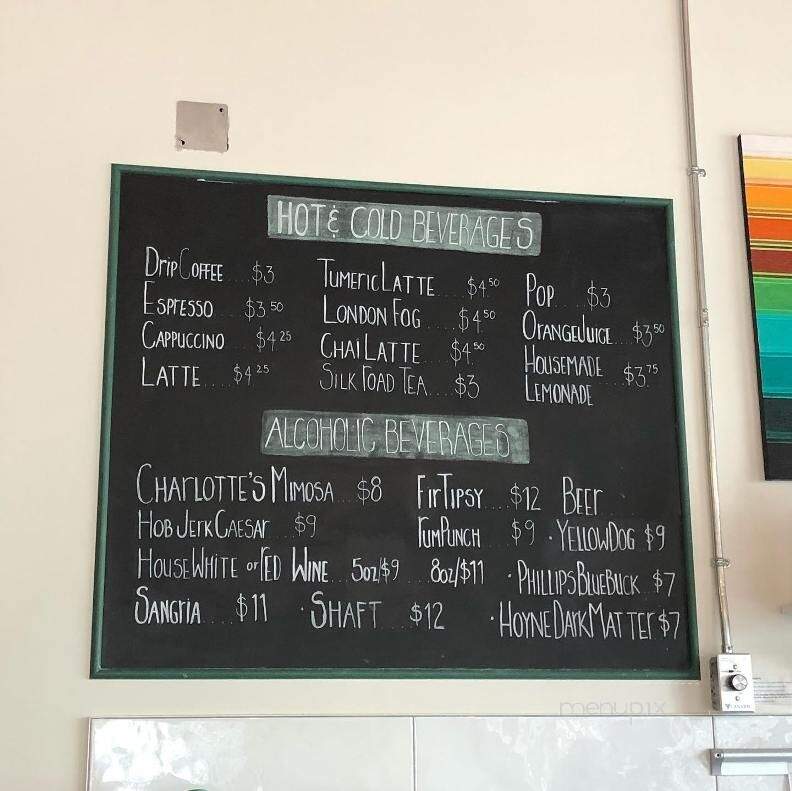 HOT & COLD BEVERAGES
DRIP COFFEE ... $3
ESPRESSO ... $3 50
CAPPUCCINO ... $4 25
LATTE ... $4 25
TUMERIC LATTE ... $4 50
LONDON FOG ... $4 50
CHAI LATTE ... $4 50
SILK ROAD TEA ... $3
POP ... $3
ORANGE JUICE ... $3 50
HOUSEMADE
LEMONADE ... $3.75
ALCOHOLIC BEVERAGES
CHARLOTTE'S MIMOSA ... $8
HOB JERK CAESAR ... $9
HOUSE WHITE or RED WINE 5oz/$9 ... 8oz/$11
SANGRIA ... $11
· SHAFT ... $12
FIRTIPSY ... $12
RUM PUNCH ... $9
BEER
· YELLOW DOG $9
· PHILLIPS BLUE BUCK .. $7
· HOYNE DARK MATTER $7
menupix
CANARM